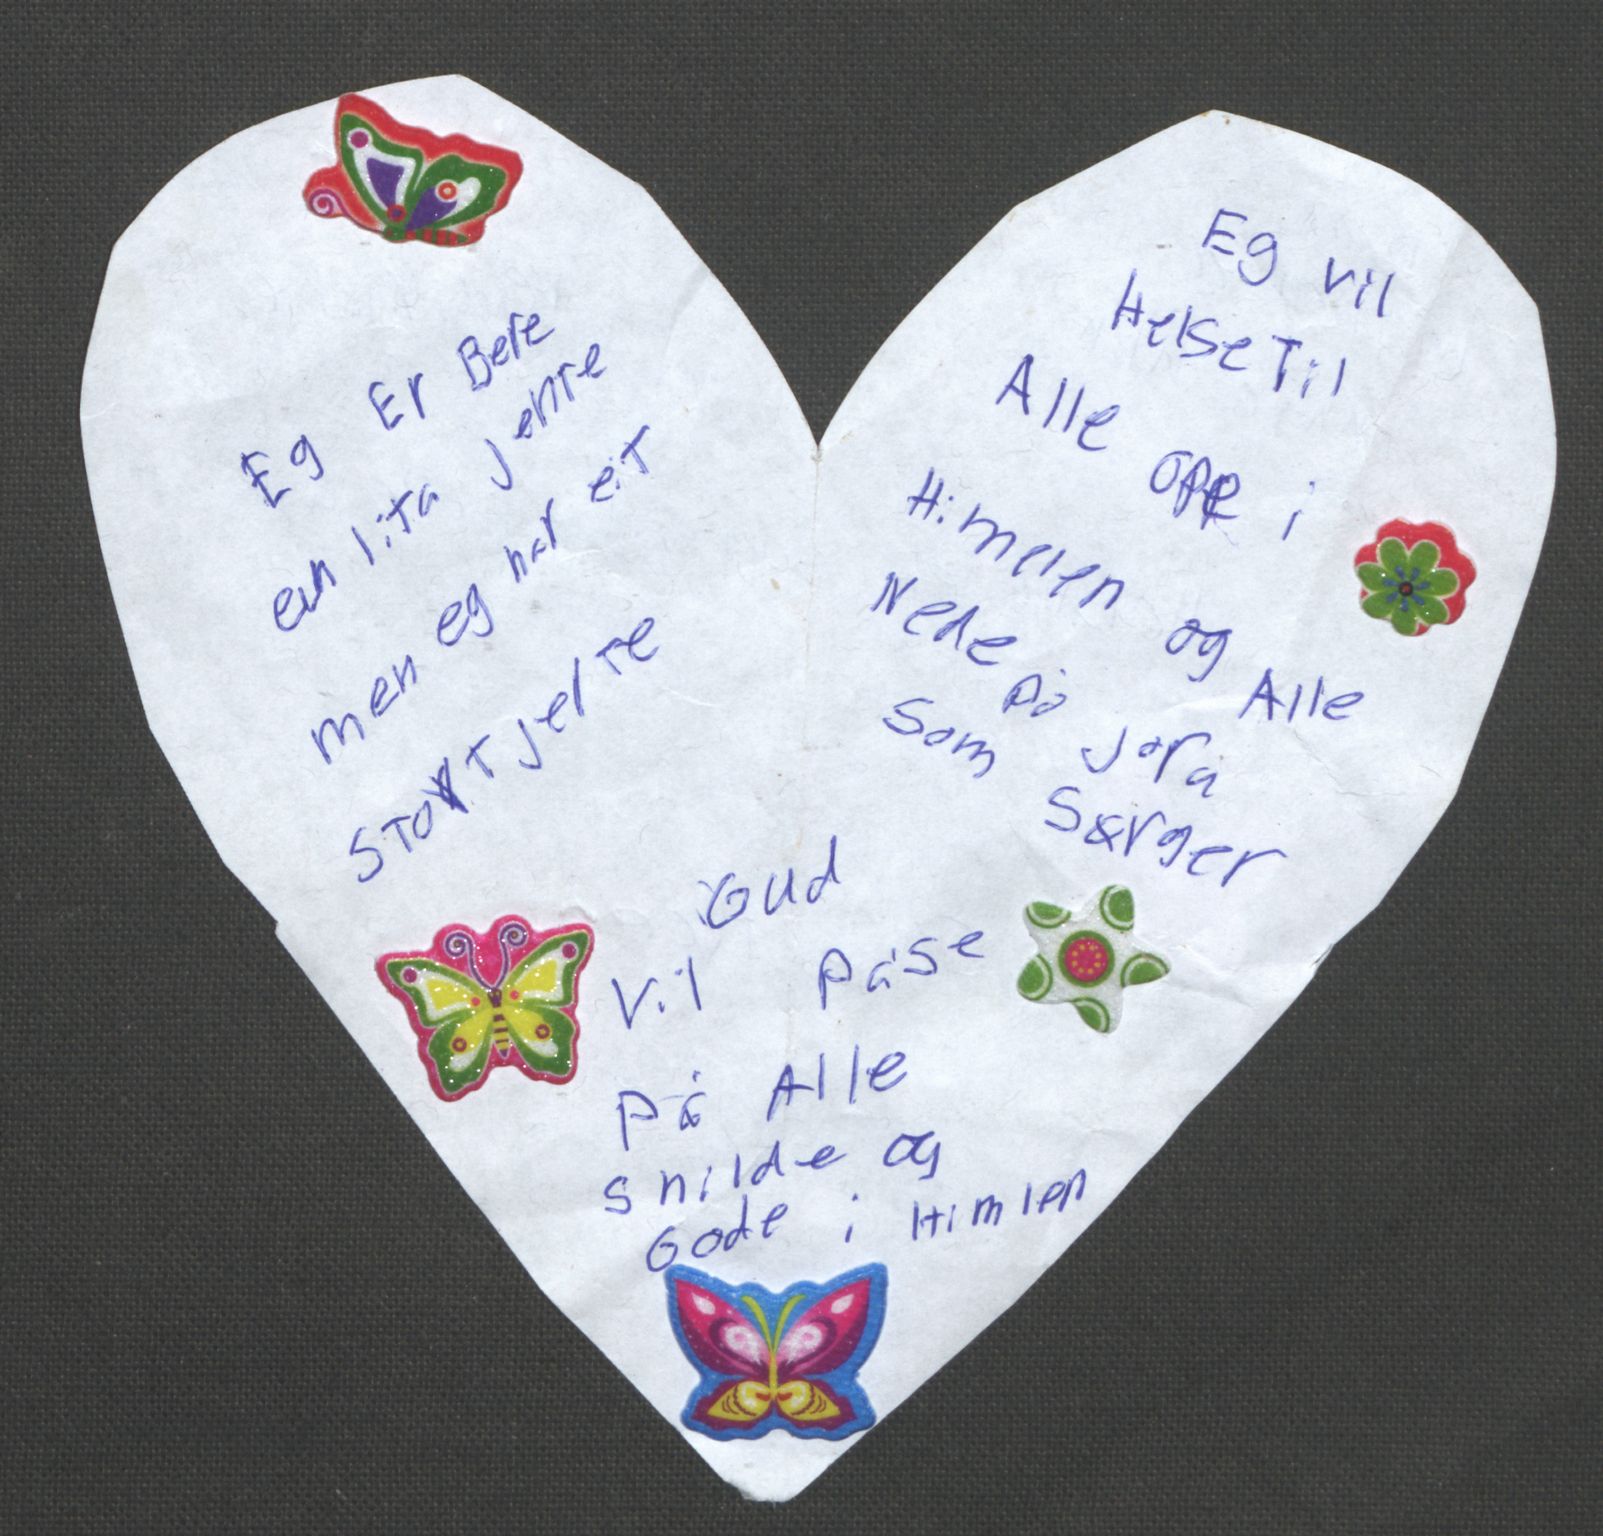 Eg Er Bere
en lita jente
men eg har eit
STORT jerte
Eg vil
Helse Til
Alle oppe i
Himelen og Alle
Nede på jora
Som Sørger
Gud
Vil påse
på Alle
snilde og
Gode i Himlen